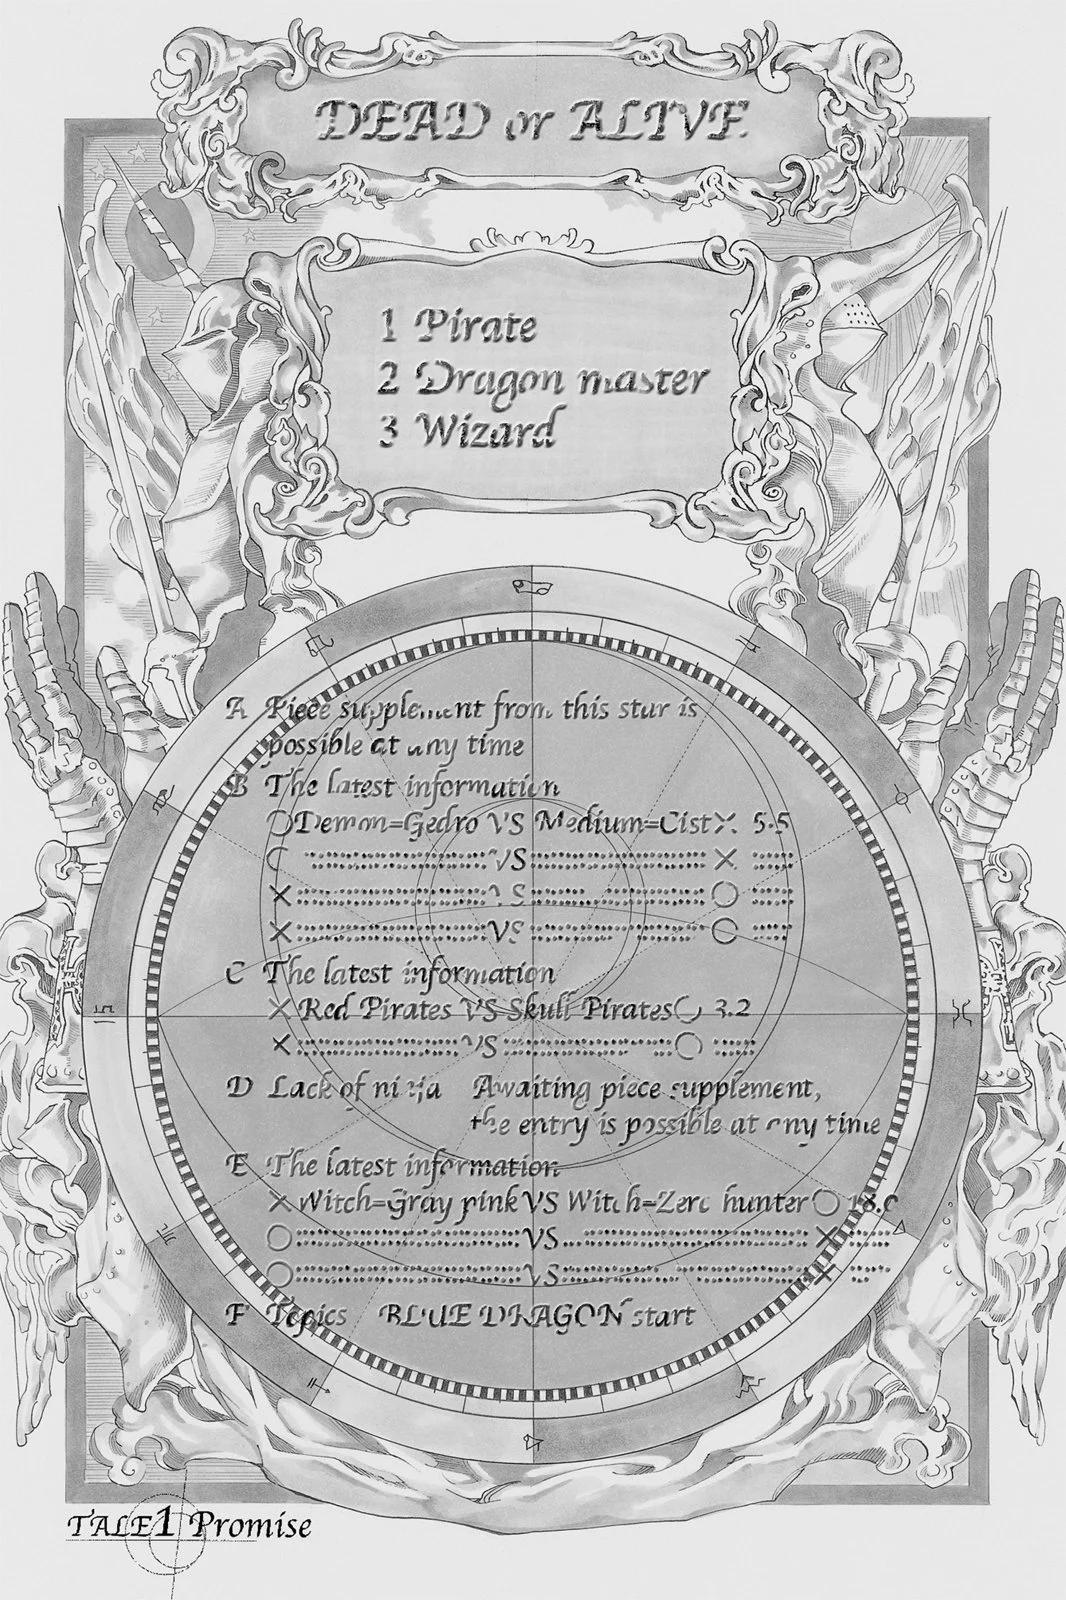 DEAD or ALIVE
1 Pirate
2 Dragon master
3 Wizard
A Piece supplement from this star is
possible at any time
B The latest information
○Demon=Gedro VS Medium=Cist× 5.5
○ VS ×
× VS ○
× VS ○
C The latest information
×Red Pirates VS Skull Pirates○ 3.2
× VS ○
D Lack of ninja Awaiting piece supplement,
the entry is possible at any time
E The latest information
×Witch=Gray pink VS Witch=Zero hunter○
○ VS ×
○ VS ×
F Topics BLUE DRAGON start
TALE1 Promise